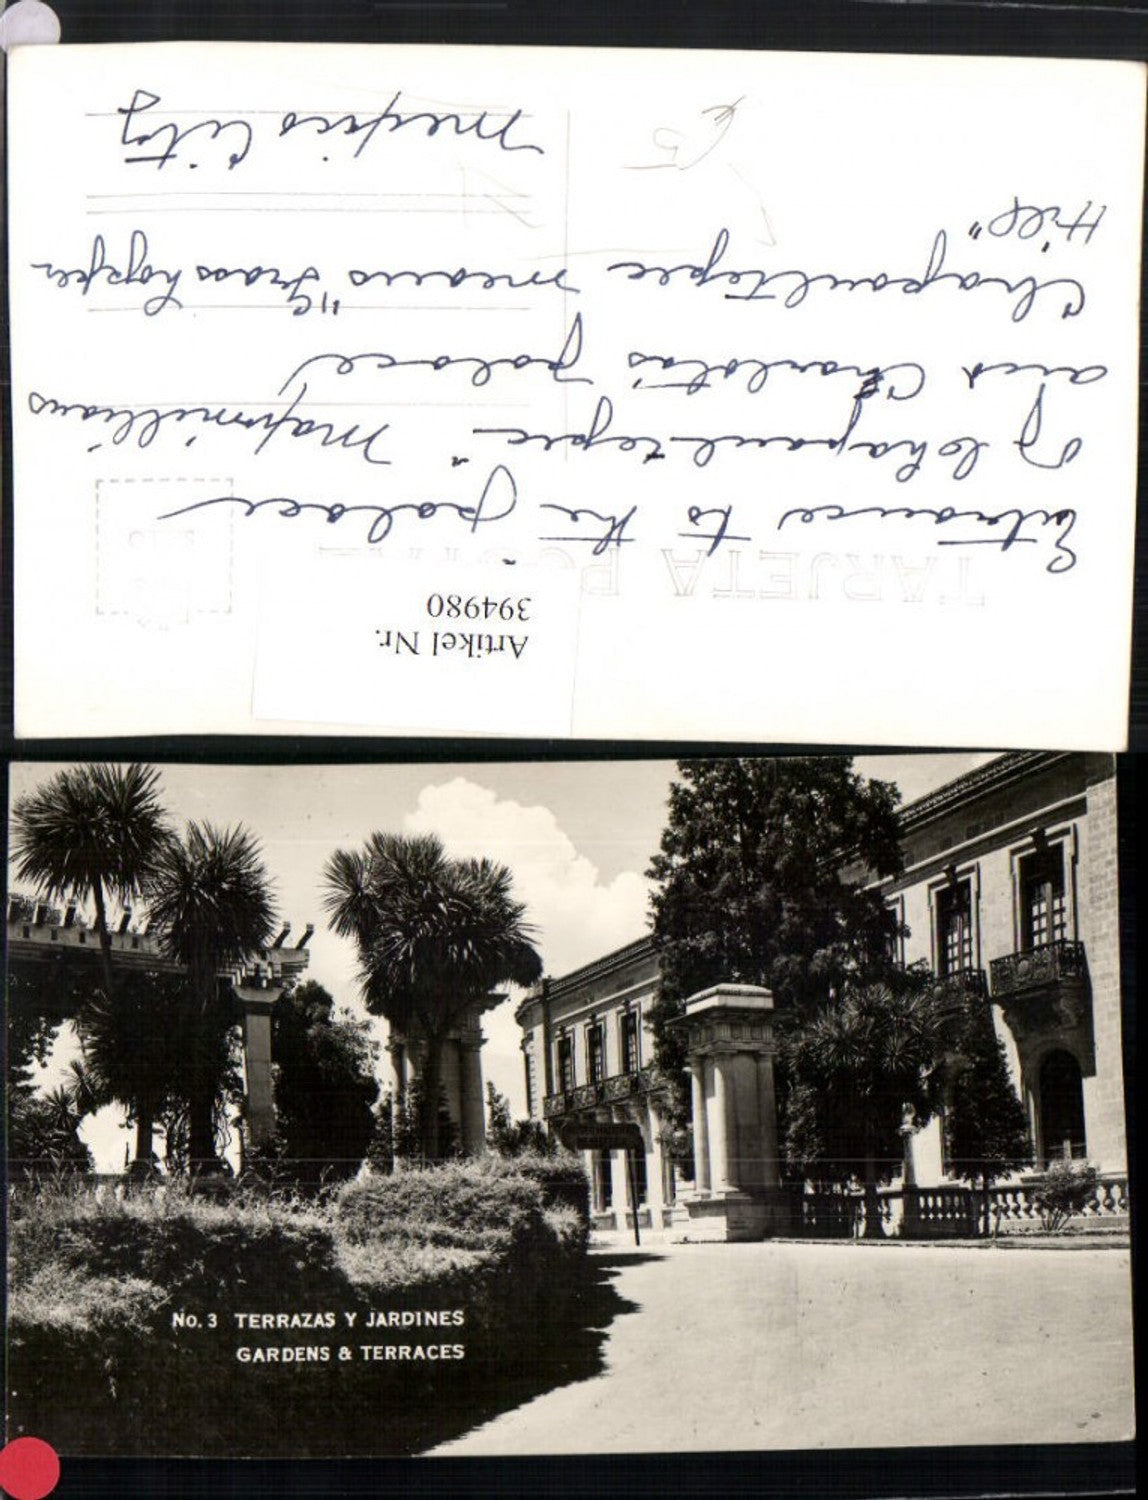 TARJETA POSTAL
Artikel Nr.
394980
Entrance to the palace
of Chapaultepec - Maxmillians
and Charlota's palace
Chapaultepec means "Grass hopper
Hill"
Mexico City
No. 3 TERRAZAS Y JARDINES
GARDENS & TERRACES